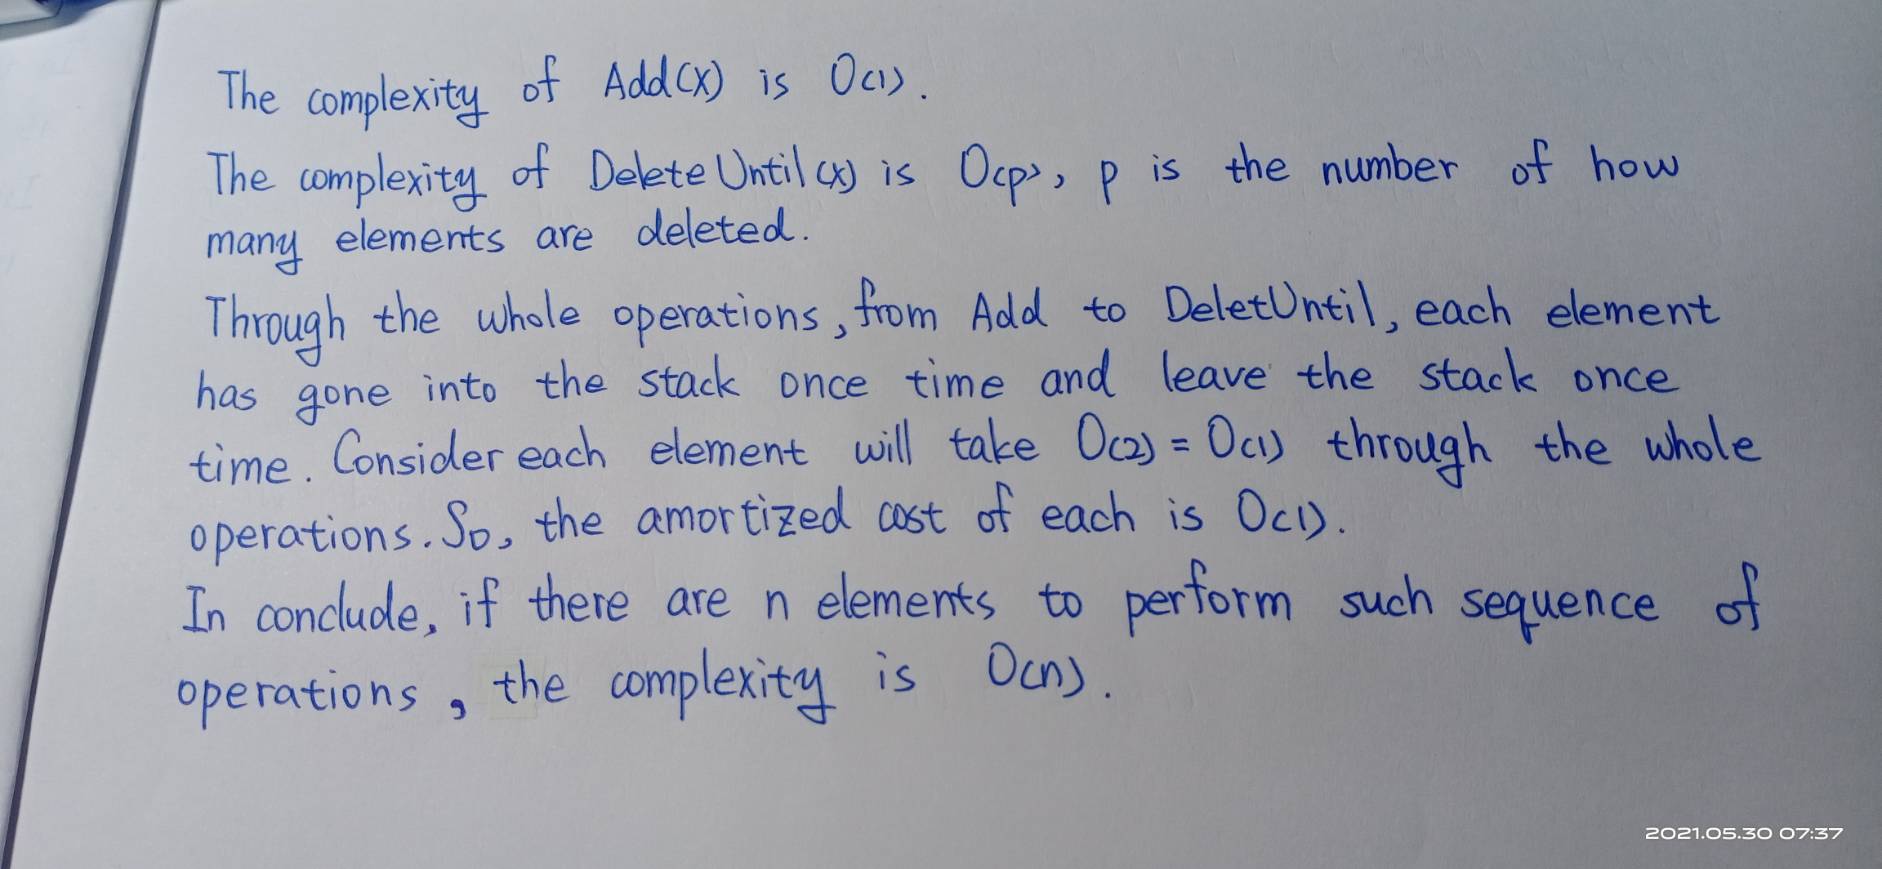 The complexity of Add(x) is O(1).
The complexity of DeleteUntil(x) is O(p), p is the number of how
many elements are deleted.
Through the whole operations, from Add to DeletUntil, each element
has gone into the stack once time and leave the stack once
time. Consider each element will take O(2) = O(1) through the whole
operations. So, the amortized cost of each is O(1).
In conclude, if there are n elements to perform such sequence of
operations, the complexity is O(n).
2021.05.30 07:37